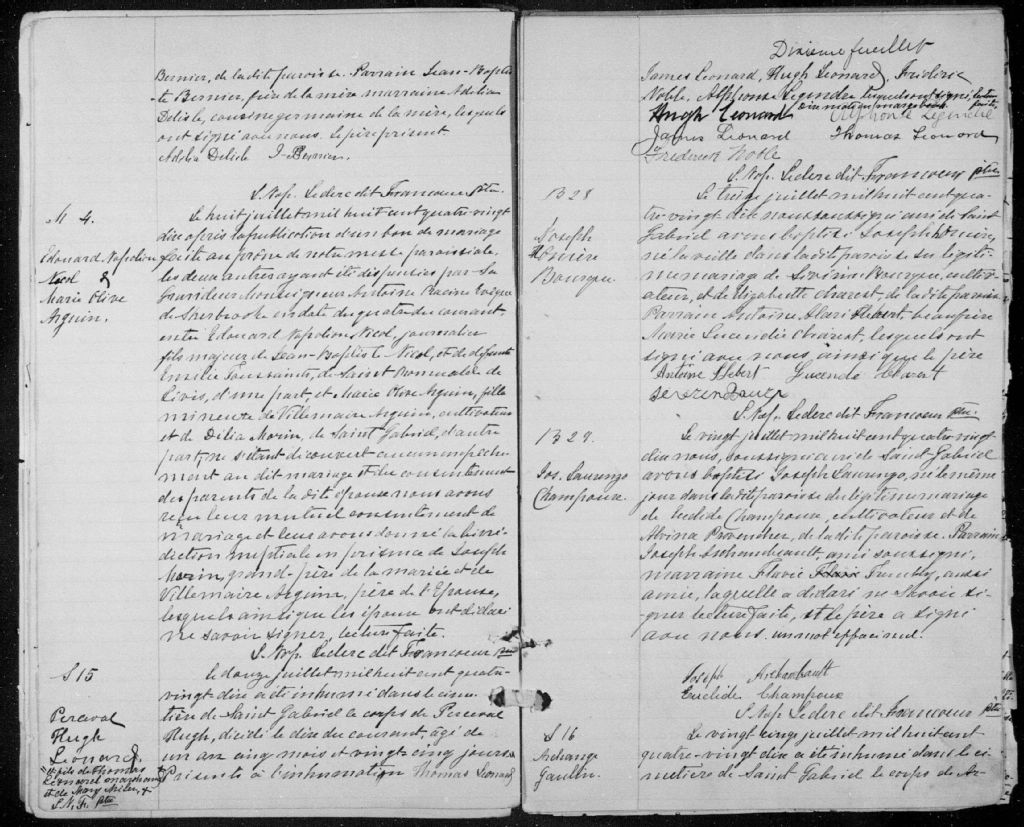 Bernier, de la dite paroisse. Parrain Jean-Baptis-
te Bernier, frère de la mère marraine Adélia
Delisle, cousine germaine de la mère, lesquels
ont signé avec nous. Le père présent
Adélia Delisle J-Bernier.
S. Nap. Leclerc dit Francoeur ptre.
M 4.
Edouard Napoléon
Nicol &
Marie Olive
Arguin.
Le huit juillet mil huit cent quatre-vingt
dix après la publication d'un ban de mariage
faite au prône de notre messe paroissiale
les deux autres ayant été dispensés par Sa
Grandeur Monseigneur Antoine Racine Evêque
de Sherbrooke en date du quatre du courant
entre Edouard Napoléon Nicol, journalier
fils majeur de Jean-Baptiste Nicol, et de défunte
Emilie Toussaints, de Saint Romuald de
Lévis, d'une part, et Marie Olive Arguin, fille
mineure de Villemaire Arguin, cultivateur
et de Délia Morin, de Saint Gabriel, d'autre
part, ne s'étant découvert aucun empêche-
ment au dit mariage et du consentement
des parents de la dite épouse nous avons
reçu leur mutuel consentement de
mariage et leur avons donné la béné-
diction nuptiale en présence de Joseph
Morin, grand-père de la mariée et de
Villemaire Arguin, père de l'Epouse,
lesquels ainsi que les époux ont déclaré
ne savoir signer, lecture faite.
S. Nap. Leclerc dit Francoeur ptre
S 15
Perceval
Hugh
Leonard
& fils de Thomas
Leonard
et de Mary Miler, &
S. N. F. ptre
Le douze juillet mil huit cent quatre-
vingt-dix a été inhumé dans le cime-
tière de Saint Gabriel le corps de Perceval
Hugh, décédé le dix du courant, âgé de
un an cinq mois et vingt-cinq jours
Présents à l'inhumation Thomas Leonard
Dixième feuillet
James Leonard, Hugh Leonard, Fréderic
Noble, Alphonse Legendre lesquels ont signé, lecture
faite,
Hugh Leonard Alphonse Legendre
James Leonard Thomas Leonard
Frederick Noble
S. Nap. Leclerc dit Francoeur ptre
B 28
Joseph
Homère
Bourque
Le treize juillet mil huit cent qua-
tre-vingt dix nous soussigné curé de Saint
Gabriel avons baptisé Joseph Homère,
né la veille dans la dite paroisse du légiti-
me mariage de Sévérin Bourque, cultiv-
ateur, et de Elizabette Charest, de la dite paroisse
Parrain Antoine Hébert beau père
Marie Lucende Charest, lesquels ont
signé avec nous, ainsi que le père
Antoine Hebert Lucende Charest
S. Nap. Leclerc dit Francoeur ptre.
B 29.
Jos. Laurenzo
Champoux
Le vingt juillet mil huit cent quatre-vingt
dix nous, soussigné curé de Saint-Gabriel
avons baptisé Joseph Laurenzo, né le même
jour dans la dite paroisse du légitime mariage
de Euclide Champoux, cultivateur et de
Albina Provencher, de la dite paroisse. Parrain
Joseph Archambault, ami soussigné,
marraine Flavie Tremblay, aussi
amie, laquelle a déclaré ne savoir si-
gner lecture faite, et le père a signé
avec nous. un mot effacé nul.
Joseph Archambault
Euclide Champoux
S. Nap. Leclerc dit Francoeur ptre
S 16
Archange
Gaulin
Le vingt cinq juillet mil huit cent
quatre-vingt dix a été inhumé dans le ci-
metière de Saint Gabriel le corps de Ar-